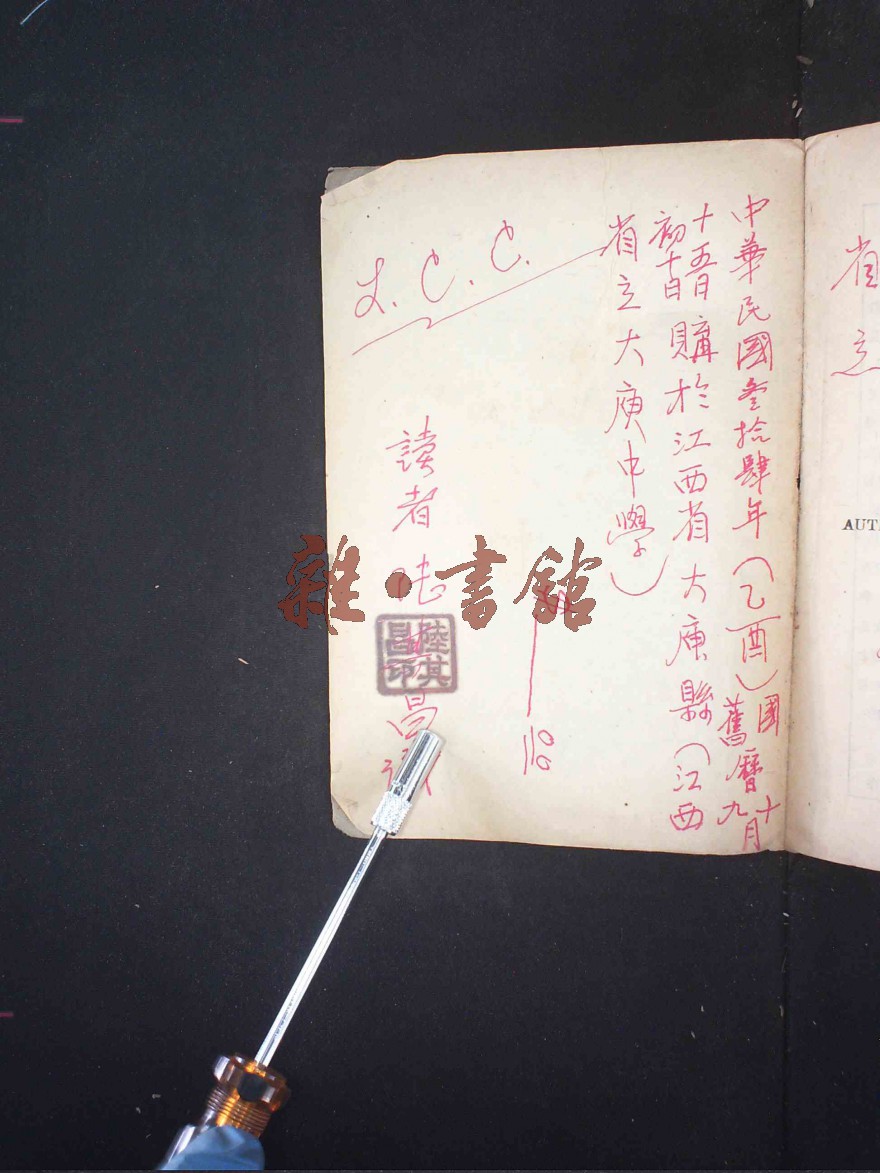 中華民國叁拾肆年（乙酉）國舊曆十九月
十五日初十日購於江西省大庾縣（江西
省立大庾中學）
L. C. C.
讀者陸其昌識
陸其昌印
雜·書館
省立
AUT